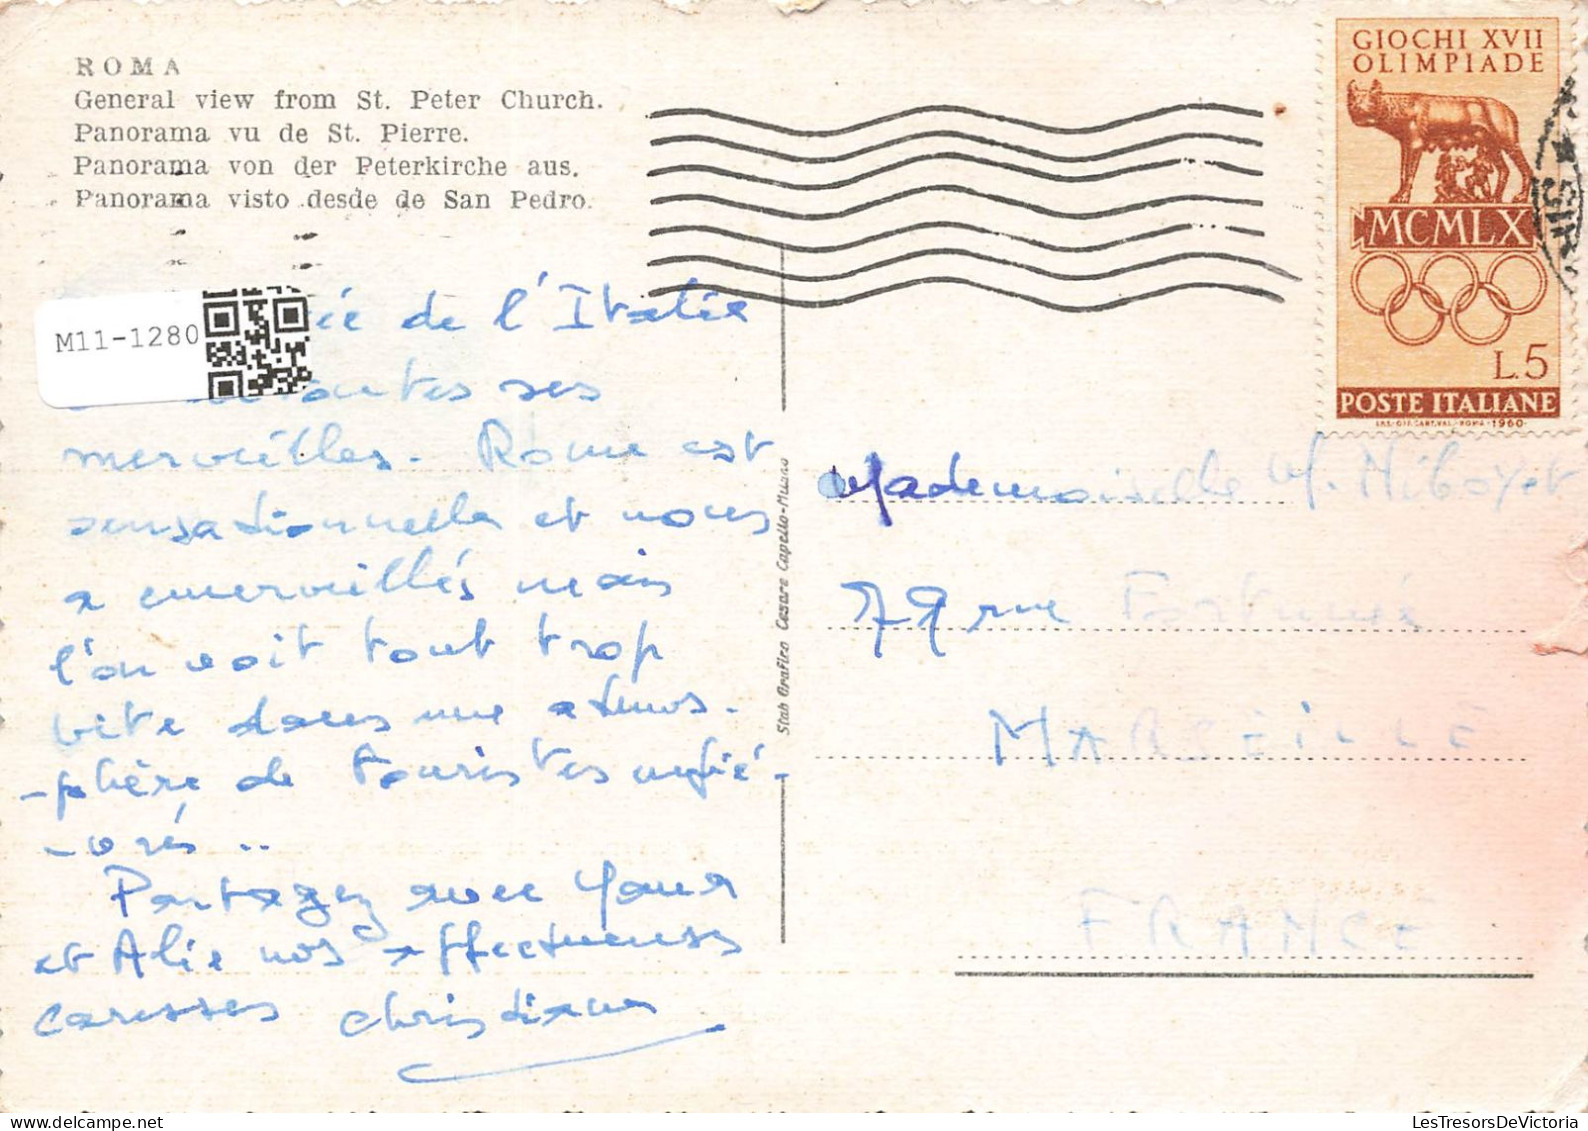 ROMA
General view from St. Peter Church.
Panorama vu de St. Pierre.
Panorama von der Peterkirche aus.
Panorama visto desde de San Pedro.
GIOCHI XVII
OLIMPIADE
MCMLX
L.5
POSTE ITALIANE
1960
M11-1280
de l'Italie
toutes ses
merveilles. Rome est
sensationnelle et nous
a émerveillés mais
l'on voit tout trop
vite dans une atmos-
-phère de touristes enfié-
-vrés ..
Partagez avec
et Alie nos affectueuses
caresses Christiane
Stab Grafico Cesare Capello-Milano
Mademoiselle M. Niboyet
79 rue Fortuné
MARSEILLE
FRANCE
LesTresorsDeVictoria